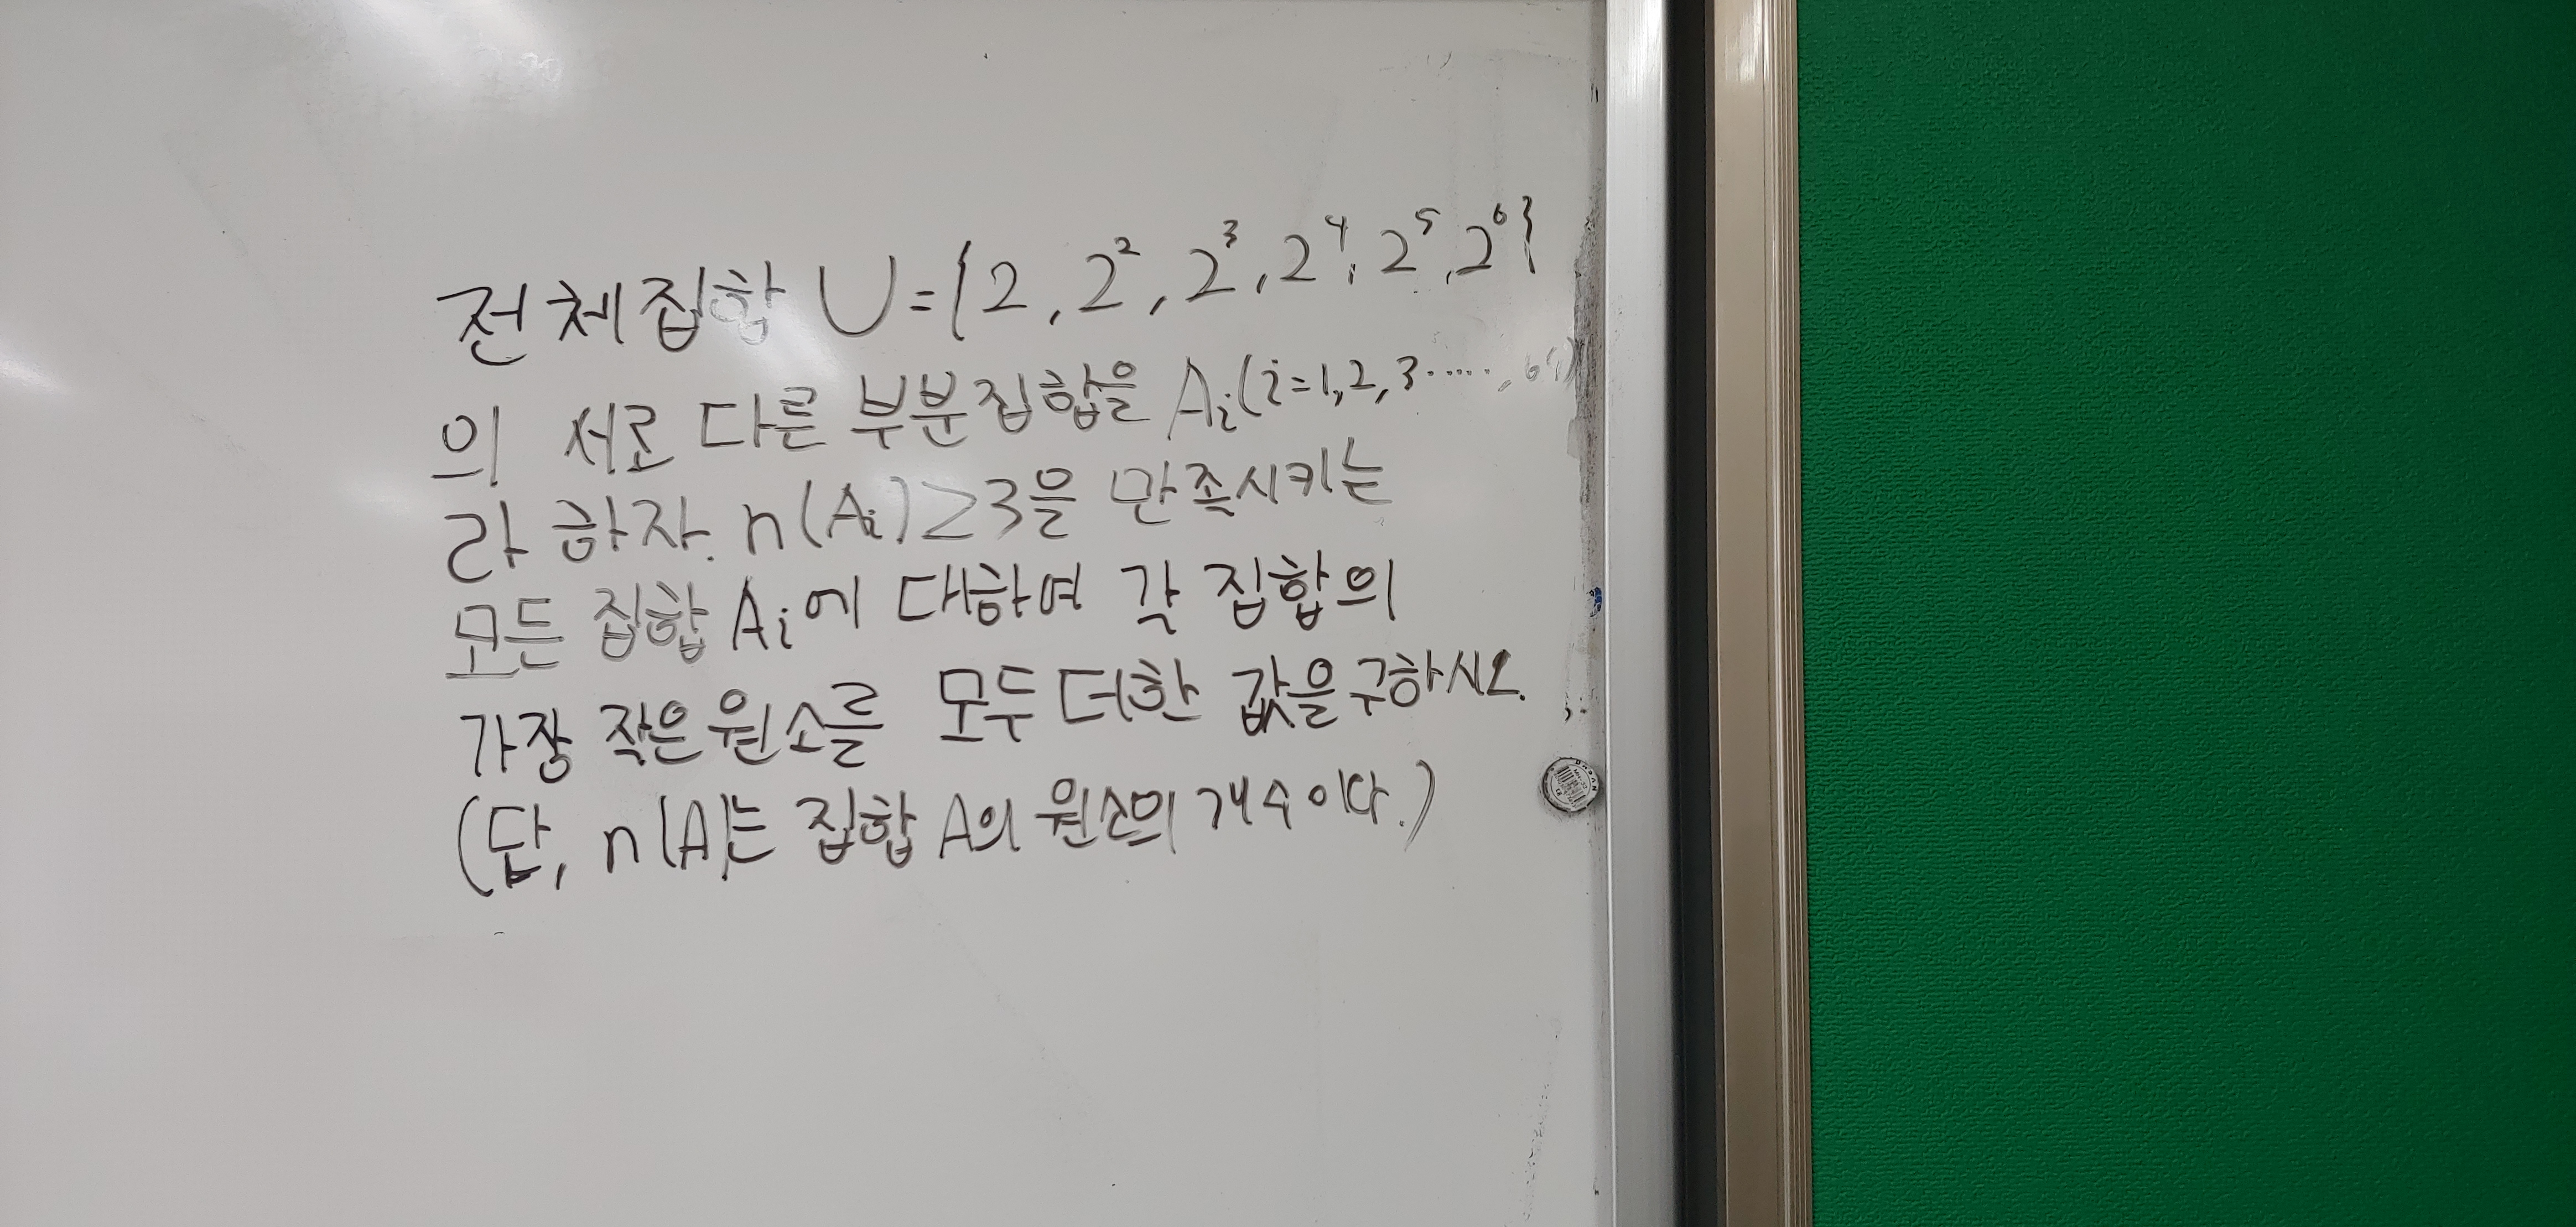 전체집합 U={2, 2², 2³, 2⁴, 2⁵, 2⁶}
의 서로 다른 부분집합을 Aᵢ(i=1,2,3·····,
라 하자. n(Aᵢ)≥3을 만족시키는
모든 집합 Aᵢ에 대하여 각 집합의
가장 작은 원소를 모두 더한 값을 구하시오.
(단, n(A)는 집합 A의 원소의 개수이다.)